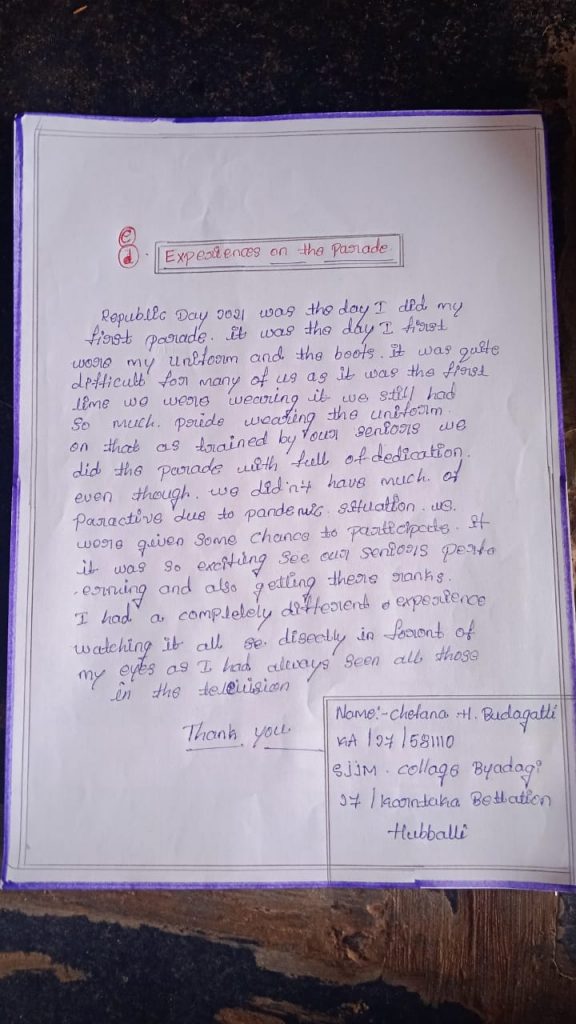 e
d. Experiences on the Parade
Republic Day 2021 was the day I did my
first parade. it was the day I first
wore my uniform and the boots. it was quite
difficult for many of us as it was the first
time we were wearing it we still had
so much. pride wearing the uniform.
on that as trained by our seniors we
did the parade with full of dedication.
even though. we didn't have much. of
Paractive due to pandemic. situation. we.
were given some chance to participate. it
it was so exciting see our seniors perfo
-erming and also getting there ranks.
I had a completely different experience
watching it all se. directly in foront of
my eyes as I had always seen all those
in the television
Thank you
Name:- Chetana H. Budagatti
KA / 27 / 581110
SJJM. collage Byadagi
27 / Karntaka Bettation
Hubballi